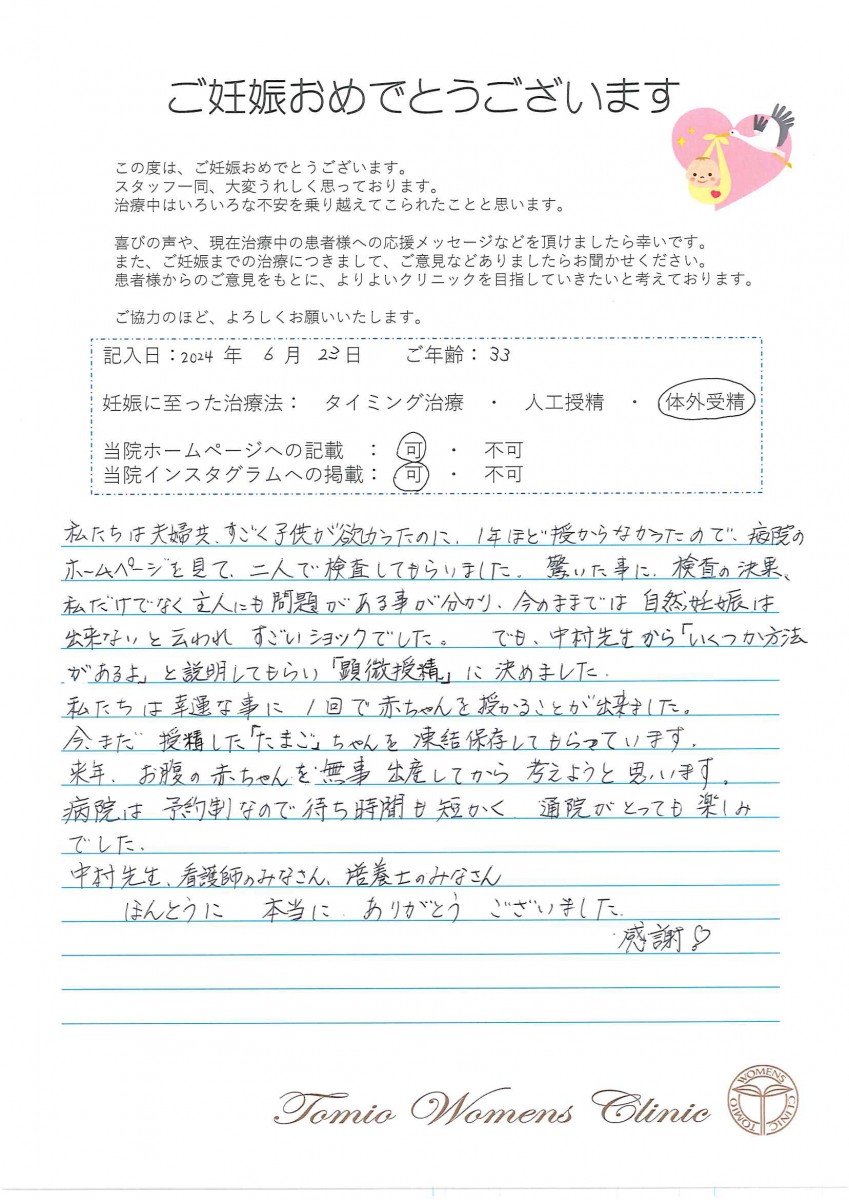 ご妊娠おめでとうございます
この度は、ご妊娠おめでとうございます。
スタッフ一同、大変うれしく思っております。
治療中はいろいろな不安を乗り越えてこられたことと思います。
喜びの声や、現在治療中の患者様への応援メッセージなどを頂けましたら幸いです。
また、ご妊娠までの治療につきまして、ご意見などありましたらお聞かせください。
患者様からのご意見をもとに、よりよいクリニックを目指していきたいと考えております。
ご協力のほど、よろしくお願いいたします。
記入日：2024 年 6 月 23日 ご年齢：33
妊娠に至った治療法： タイミング治療 ・ 人工授精 ・ 体外受精
当院ホームページへの記載 ： 可 ・ 不可
当院インスタグラムへの掲載： 可 ・ 不可
私たちは夫婦共、すごく子供が欲かったのに、1年ほど授からなかったので、病院の
ホームページを見て、二人で検査してもらいました。驚いた事に、検査の決果、
私だけでなく主人にも問題がある事が分かり、今のままでは自然妊娠は
出来ないと云われ すごいショックでした。 でも、中村先生から「いくつか方法
があるよ」と説明してもらい「顕微授精」に決めました。
私たちは幸運な事に 1回で赤ちゃんを授かることが出来ました。
今、まだ 授精した「たまご」ちゃんを凍結保存してもらっています。
来年、お腹の赤ちゃんを無事出産してから 考えようと思います。
病院は予約制なので待ち時間も短かく 通院がとっても楽しみ
でした。
中村先生、看護師のみなさん、培養士のみなさん
ほんとうに 本当に、ありがとう ございました。
感謝♡
Tomio Womens Clinic
TOMIO WOMENS CLINIC